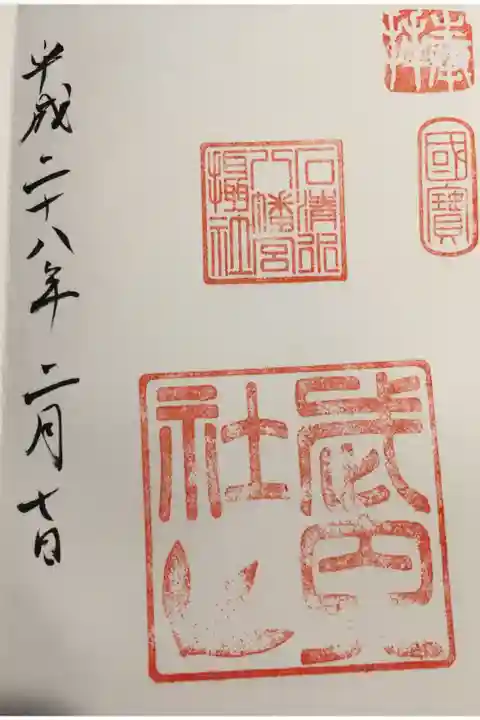 奉拝
國寶
石清水
八幡宮
攝社
武内
社
平成二十八年二月七日